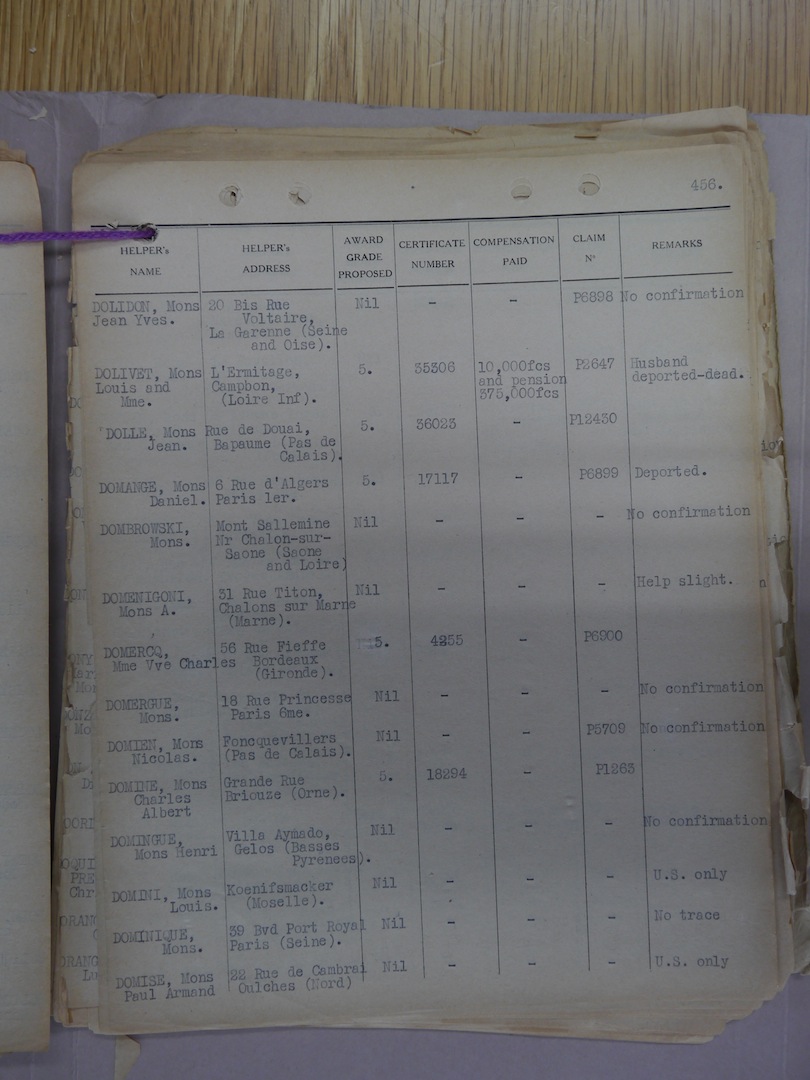 456.
HELPER's NAME HELPER's ADDRESS AWARD GRADE PROPOSED CERTIFICATE NUMBER COMPENSATION PAID CLAIM Nº REMARKS
DOLIDON, Mons 20 Bis Rue Nil - - P6898 No confirmation
Jean Yves. Voltaire,
La Garenne (Seine
and Oise).
DOLIVET, Mons L'Ermitage, 5. 35306 10,000fcs P2647 Husband
Louis and Campbon, and pension deported-dead.
Mme. (Loire Inf). 375,000fcs
DOLLE, Mons Rue de Douai, 5. 36023 - P12430
Jean. Bapaume (Pas de
Calais).
DOMANGE, Mons 6 Rue d'Algers 5. 17117 - P6899 Deported.
Daniel. Paris 1er.
DOMBROWSKI, Mont Sallemine Nil - - - No confirmation
Mons. Nr Chalon-sur-
Saone (Saone
and Loire)
DOMENIGONI, 31 Rue Titon, Nil - - - Help slight.
Mons A. Chalons sur Marne
(Marne).
DOMERCQ, 56 Rue Fieffe 5. 4255 - P6900
Mme Vve Charles Bordeaux
(Gironde).
DOMERGUE, 18 Rue Princesse Nil - - - No confirmation
Mons. Paris 6me.
DOMIEN, Mons Foncquevillers Nil - - P5709 No confirmation
Nicolas. (Pas de Calais).
DOMINE, Mons Grande Rue 5. 18294 - P1263
Charles Briouze (Orne).
Albert
DOMINGUE, Villa Aymado, Nil - - - No confirmation
Mons Henri Gelos (Basses
Pyrenees).
DOMINI, Mons Koenifsmacker Nil - - - U.S. only
Louis. (Moselle).
DOMINIQUE, 39 Bvd Port Royal Nil - - - No trace
Mons. Paris (Seine).
DOMISE, Mons 22 Rue de Cambrai Nil - - - U.S. only
Paul Armand Oulches (Nord)